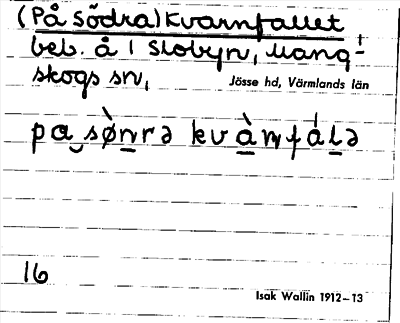 (På Södra) Kvarnfallet,
beb. å i Skobyn, Mang-
skogs sn,
Jösse hd, Värmlands län
pa sø̀nrə kvàɳfálə
16
Isak Wallin 1912–13